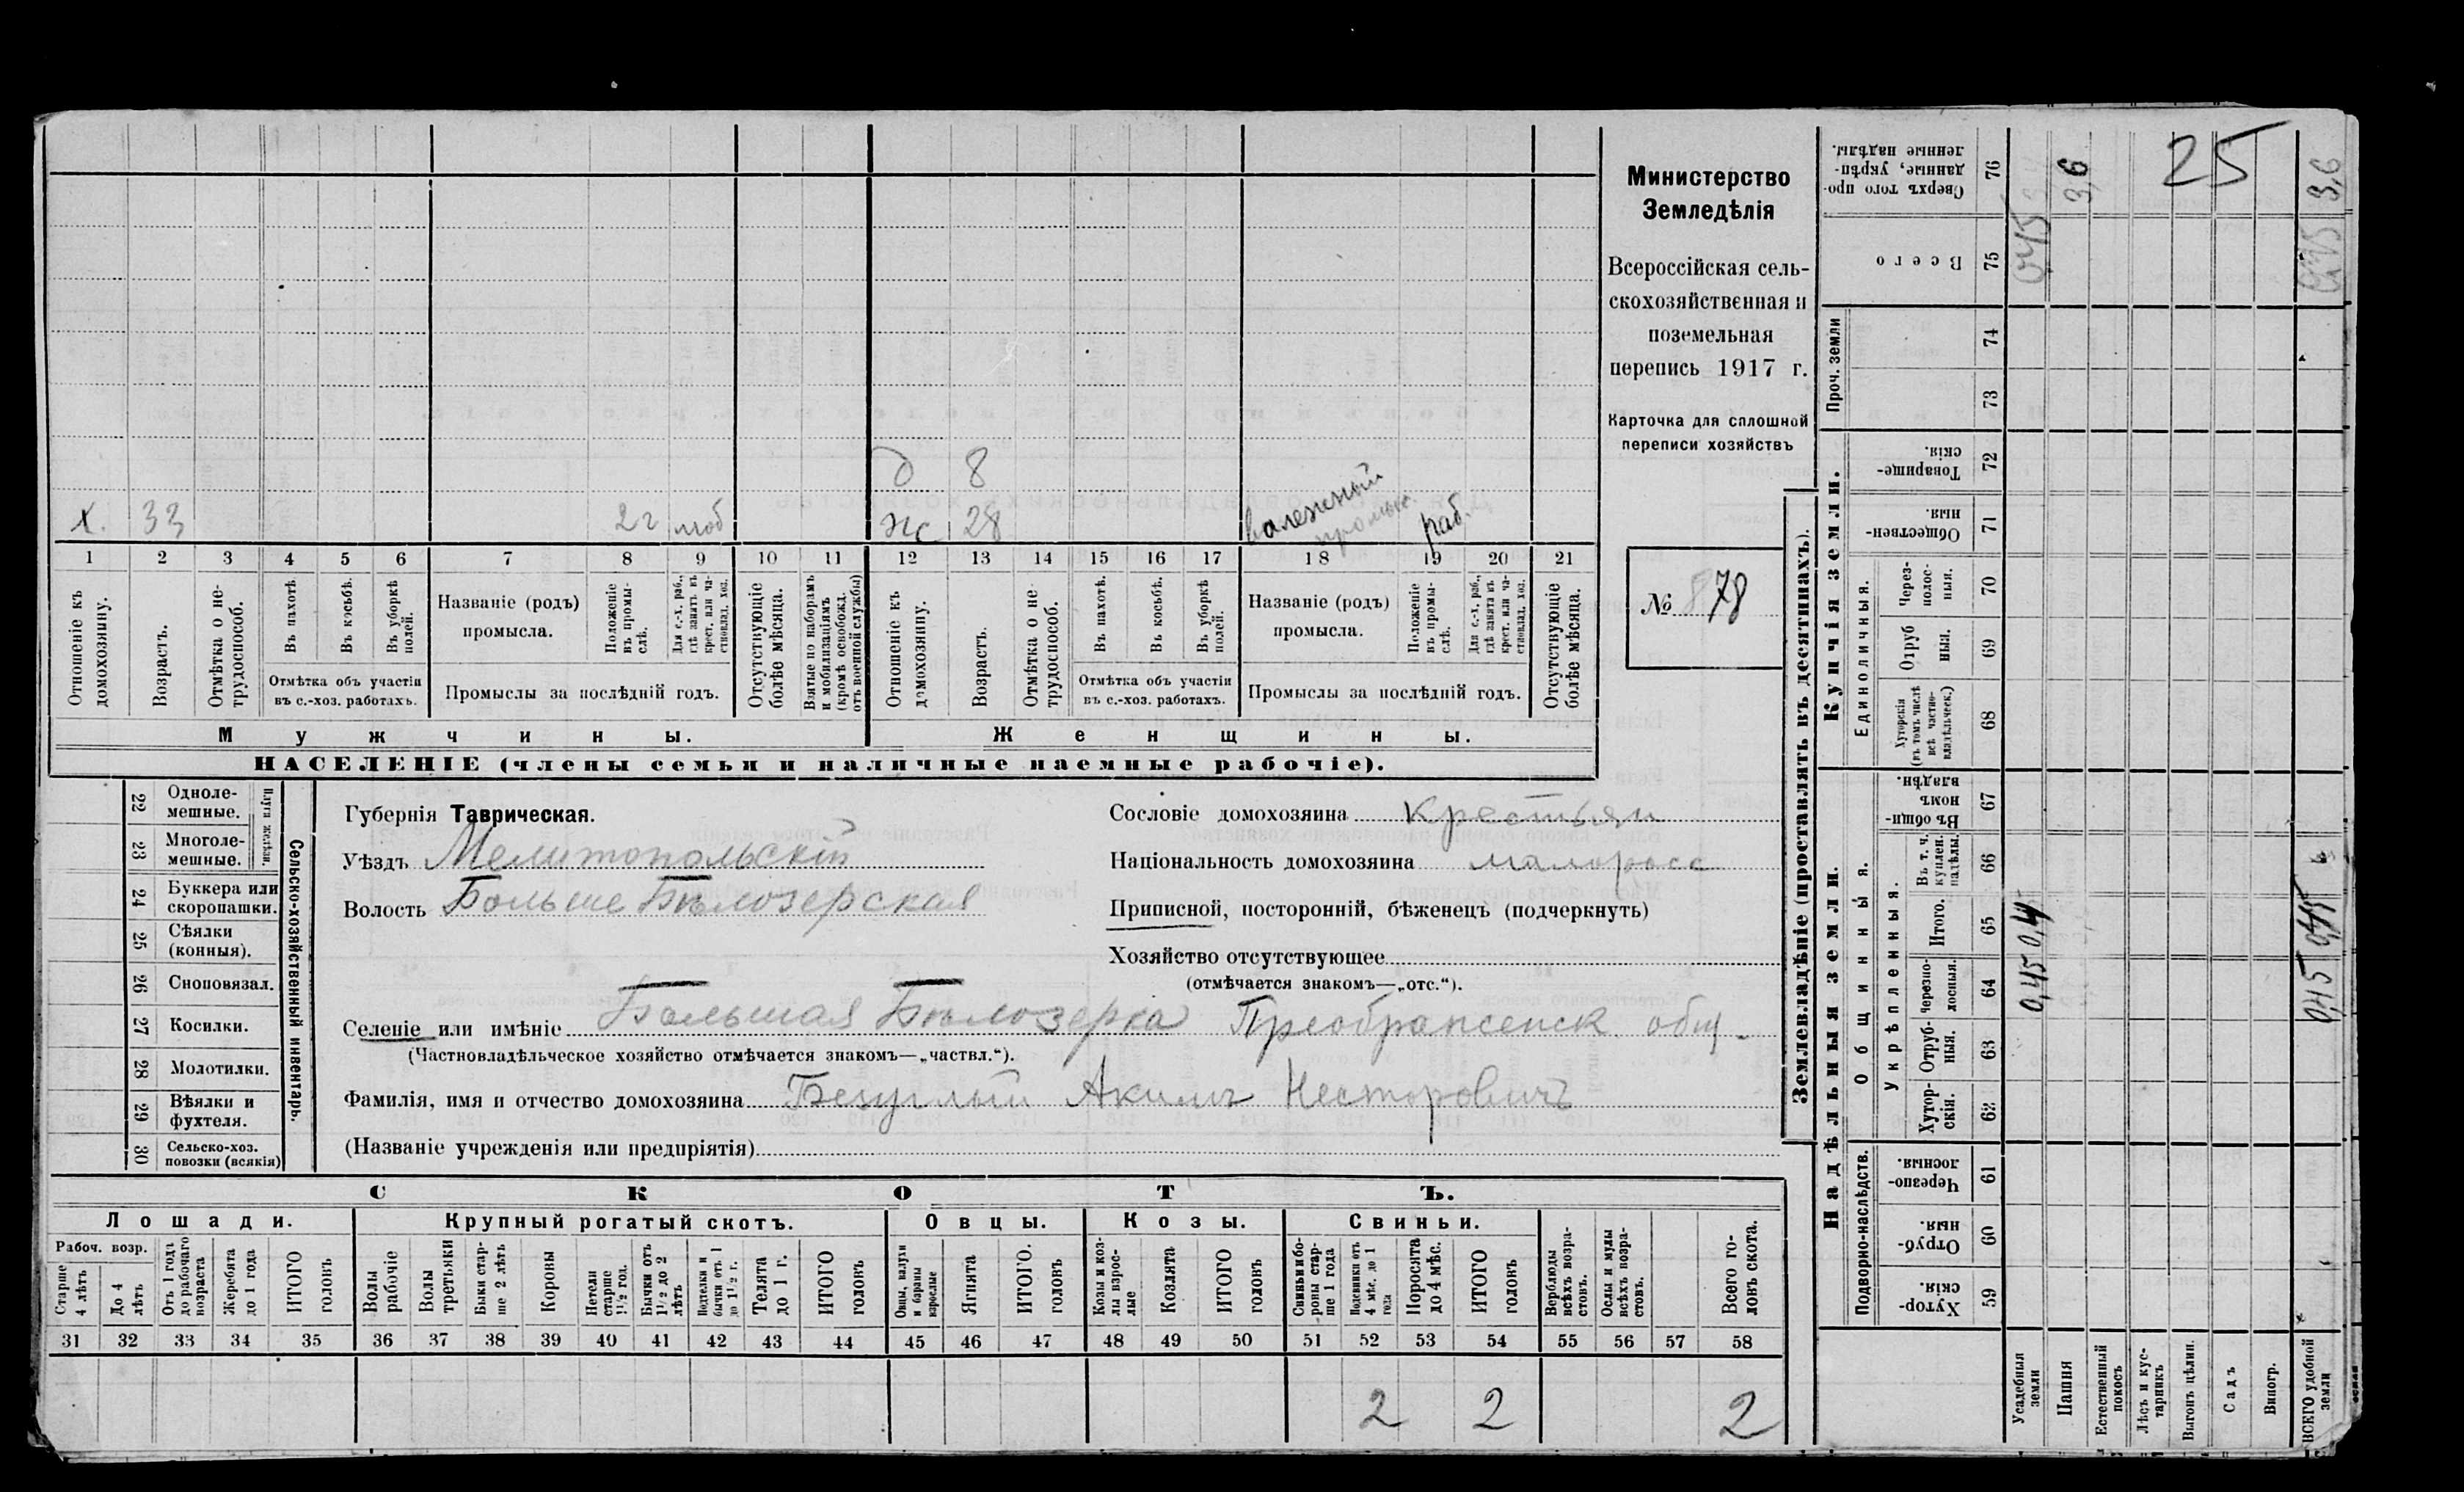 Министерство
Земледѣлія
Всероссійская сель-
скохозяйственная и
поземельная
перепись 1917 г.
Карточка для сплошной
переписи хозяйствъ
№ 878
д 8
х. 33 2 г моб
ж 28 раб.
1 2 3 4 5 6 7 8 9 10 11 12 13 14 15 16 17 18 19 20 21
Отношеніе къ домохозяину.
Возрастъ.
Отмѣтка о не-трудоспособ.
Въ пахотѣ.
Въ косьбѣ.
Въ уборкѣ полей.
Отмѣтка объ участіи
въ с.-хоз. работахъ.
Названіе (родъ)
промысла.
Положеніе въ промы-слѣ.
Для с.-х. раб., гдѣ занятъ въ крест. или ча-стновлад. хоз.
Промыслы за послѣдній годъ.
Отсутствующіе болѣе мѣсяца.
Взятые по наборамъ и мобилизаціямъ (кромѣ освобожд. отъ военной службы)
Отношеніе къ домохозяину.
Возрастъ.
Отмѣтка о не-трудоспособ.
Въ пахотѣ.
Въ косьбѣ.
Въ уборкѣ полей.
Отмѣтка объ участіи
въ с.-хоз. работахъ.
Названіе (родъ)
промысла.
Положеніе въ промы-слѣ.
Для с.-х. раб., гдѣ занята въ крест. или ча-стновлад. хоз.
Промыслы за послѣдній годъ.
Отсутствующіе болѣе мѣсяца.
Мужчины.
Женщины.
НАСЕЛЕНІЕ (члены семьи и наличные наемные рабочіе).
22 Одноле-мешные.
23 Многоле-мешные.
Плуги желѣзн.
24 Буккера или скоропашки.
25 Сѣялки (конныя).
26 Сноповязал.
27 Косилки.
28 Молотилки.
29 Вѣялки и фухтеля.
30 Сельско-хоз. повозки (всякія)
Сельско-хозяйственный инвентарь.
Губернія Таврическая.
Уѣздъ Мелитопольскій
Волость Больше Бѣлозерская
Сословіе домохозяина крестьян
Національность домохозяина малоросс
Приписной, посторонній, бѣженецъ (подчеркнуть)
Хозяйство отсутствующее
(отмѣчается знакомъ—„отс.“).
Селеніе или имѣніе Большая Бѣлозерка Преображенск. общ.
(Частновладѣльческое хозяйство отмѣчается знакомъ—„частвл.“).
Фамилія, имя и отчество домохозяина Безуглый Акимъ Несторовичъ
(Названіе учрежденія или предпріятія)
СКОТЪ.
Лошади.
Крупный рогатый скотъ.
Овцы.
Козы.
Свиньи.
Рабоч. возр.
Старше 4 лѣтъ
До 4 лѣтъ
Отъ 1 года до рабочаго возраста
Жеребята до 1 года
ИТОГО головъ
Волы рабочіе
Волы третьяки
Быки стар-ше 2 лѣтъ
Коровы
Нетели старше 1½ год.
Бычки отъ 1½ до 2 лѣтъ
Подтелки и бычки отъ 1 до 1½ г.
Телята до 1 г.
ИТОГО головъ
Овцы, валухи и бараны взрослые
Ягнята
ИТОГО. головъ
Козы и коз-лы взрос-лые
Козлята
ИТОГО головъ
Свиньи и бо-ровы стар-ше 1 года
Подсвинки отъ 4 мѣс. до 1 года
Поросята до 4 мѣс.
ИТОГО головъ
Верблюды всѣхъ возра-стовъ.
Ослы и мулы всѣхъ возра-стовъ.
Всего го-ловъ скота.
31 32 33 34 35 36 37 38 39 40 41 42 43 44 45 46 47 48 49 50 51 52 53 54 55 56 57 58
2 2 2
Землевладѣніе (проставлять въ десятинахъ).
Сверхъ того про-данные, укрѣп-ленные надѣлы. 76 3,6
25
3,6
Всего 75 0,45
Проч. земли
74
73
Купчія земли.
Товарище-скія. 72
Обществен-ныя. 71
Единоличныя.
Через-полос-ныя. 70
Отруб-ныя. 69
Хуторскія (въ томъ числѣ всѣ частно-владѣльческ.) 68
Надѣльныя земли.
Общинныя.
Въ общин-номъ владѣн. 67
Укрѣпленныя.
Въ т. ч. куплен. надѣлы. 66
Итого. 65
Черезпо-лосныя. 64 0,45
Отруб-ныя. 63
Хутор-скія. 62
Подворно-наслѣдств.
Черезпо-лосныя. 61
Отруб-ныя. 60
Хутор-скія. 59
Усадебныя земли
Пашня
Естественный покосъ
Лѣсъ и кус-тарникъ
Выгонъ цѣлин.
Садъ
Виногр.
ВСЕГО удобной земли